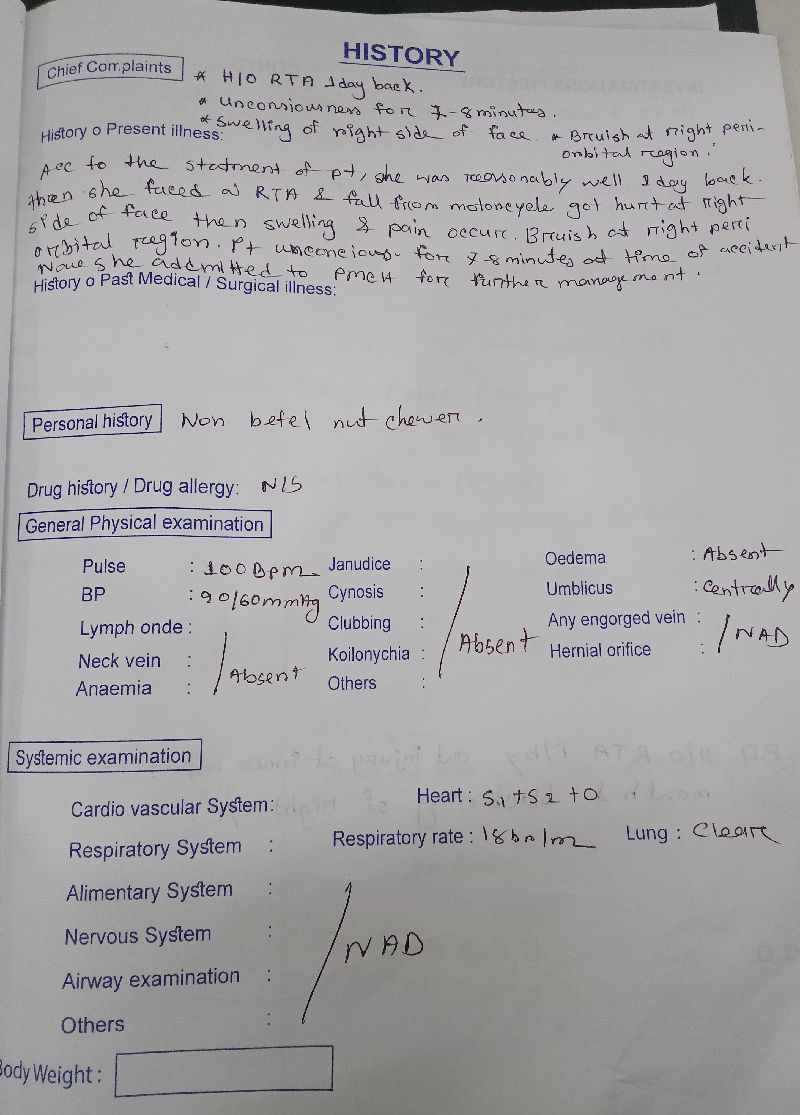 HISTORY
Chief Complaints * H/O RTA 1day back.
* unconsiousness for 7-8minutes.
* swelling of right side of face * Bruish at right peri-
orbital region.
History o Present illness:
Acc to the statment of pt, she was reasonably well 1 day back.
then she faced a RTA & fall from motorcycle got hurt at right
side of face then swelling & pain occur. Bruish at right peri
orbital region. Pt unconcious for 7-8minutes at time of accident
Now she addmitted to PMCH for further management.
History o Past Medical / Surgical illness:
Personal history Non betel nut chewer.
Drug history / Drug allergy: N/S
General Physical examination
Pulse : 100 Bpm Janudice : Oedema : Absent
BP : 90/60mmHg Cynosis : Umblicus : Centrally
Lymph onde : Clubbing : Any engorged vein :
Neck vein : Absent Koilonychia : Absent Hernial orifice : NAD
Anaemia : Others :
Systemic examination
Cardio vascular System: Heart : S1 + S2 + 0
Respiratory System : Respiratory rate : 18 br/m Lung : Clear
Alimentary System :
Nervous System : NAD
Airway examination :
Others :
Body Weight :